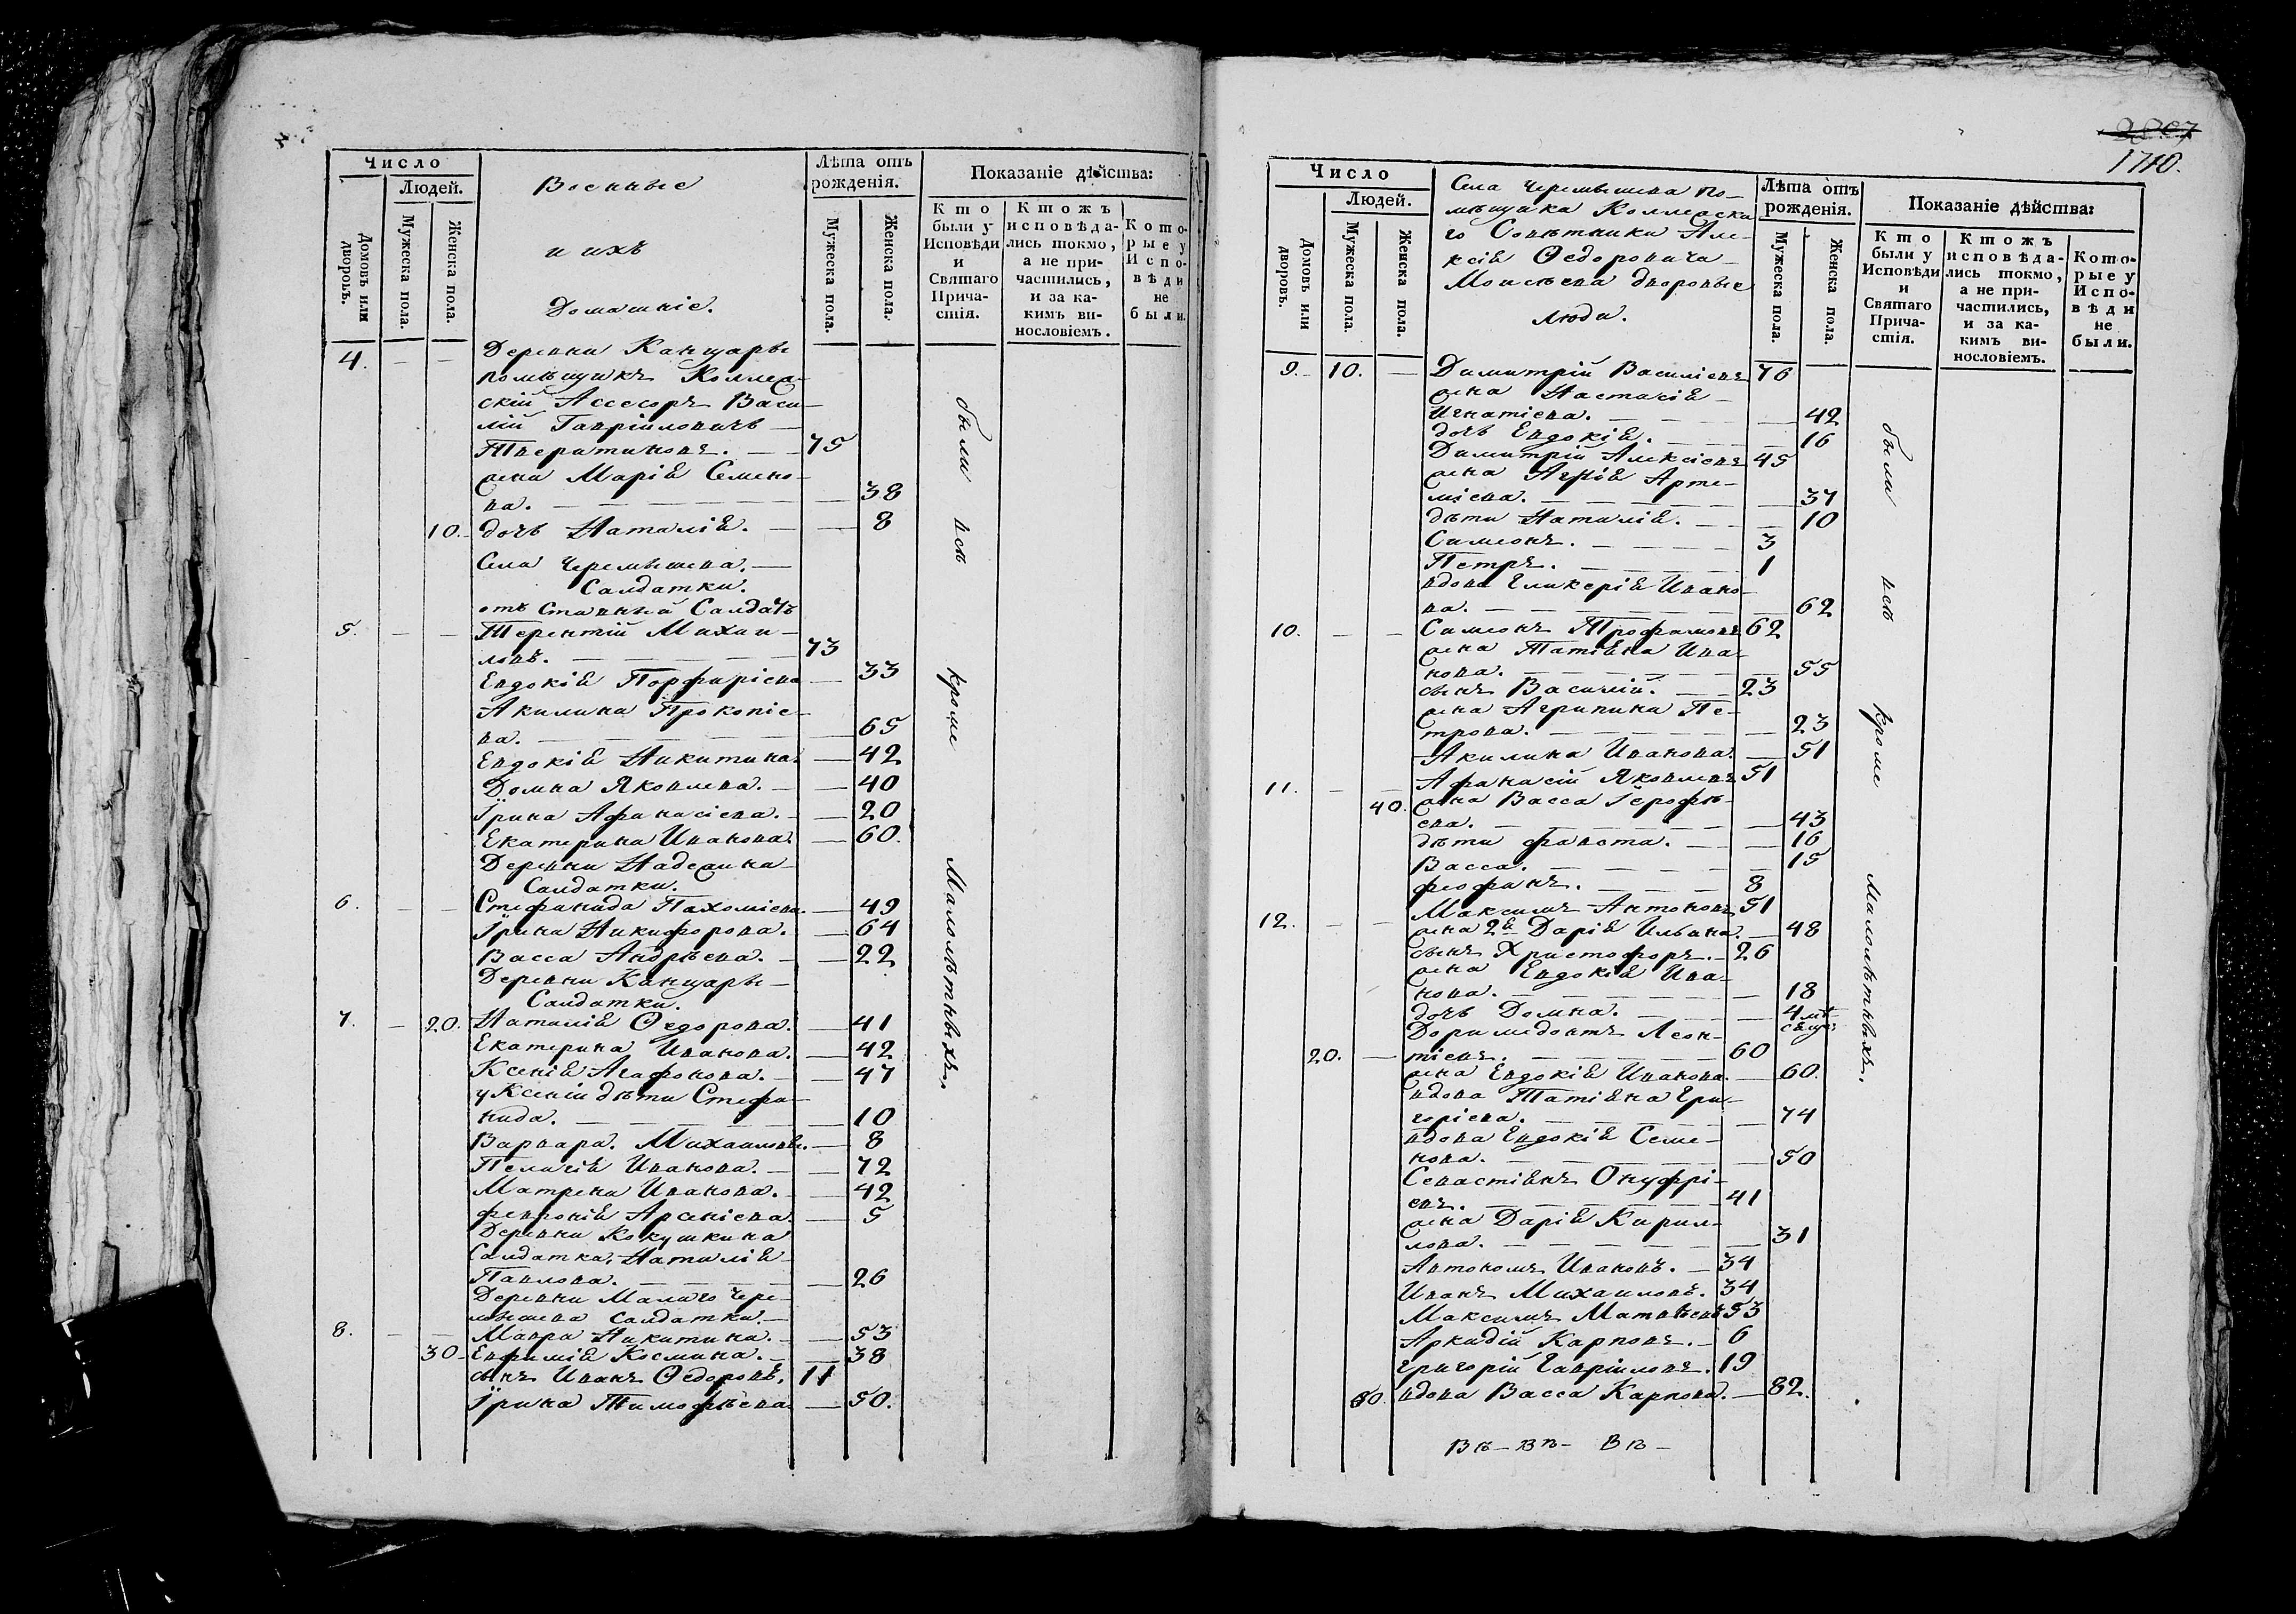 Число
Людей.
Домовъ или дворовъ.
Мужеска пола.
Женска пола.
Военные
и ихъ
Домашніе.
Лѣта отъ рожденія.
Мужеска пола.
Женска пола.
Показаніе дѣйства:
Кто были у Исповѣди и Святаго Причастія.
Ктожъ исповѣдались токмо, а не причастились, и за какимъ винословіемъ.
Которые у Исповѣди не были.
4. — — Деревни Канцары
помѣщикъ Коллеж-
скій Ассесоръ Васи-
лій Гавріиловичь —
Тверитиновъ. — — 75
жена Марія Семено-
ва. — — 38
10. дочь Наталія. — — 8
Села Черемышева. —
Салдатки.
отъ Ставный Салдатъ
5. — — Терентій Михаи-
ловъ. — 73
Евдокія Порфиріева — 33
Акилина Прокопіе-
ва. — 65
Евдокія Никитина — 42
Домна Яковлева. — 40
Ірина Афанасіева. — 20
Екатерина Иванова. — 60.
Деревни Надеждина
Салдатки.
6. — — Стефанида Пахоміева. — 49
Ірина Никифорова. — 64
Васса Андрѣева. — 22
Деревни Канцары —
Салдатки.
7. — 20. Наталія Ѳедорова. — 41
Екатерина Иванова. — 42
Ксенія Агафонова. — 47
у Ксеніи дѣти Стефа-
нида. — 10
Варвара. Михаиловы. — 8
Пелагія Иванова. — 72
Матрена Иванова. — 42
Февронія Арсеніева. — 5
Деревни Кокушкина
Салдатка, Наталія
Павлова. — 26
Деревни Малаго Чере-
мышева Салдатки. —
8. — — Мавра Никитина. — 53
30. Евфимія Космина. — 38
сынъ Иванъ Ѳедоровъ, 11
Ірина Тимофѣева — 50.
были всѣ кроме малолѣтныхъ,
1710.
Число
Людей.
Домовъ или дворовъ.
Мужеска пола.
Женска пола.
Села Черемышева по-
мѣщика Коллежска
го Совѣтника Але-
ксія Ѳедоровича
Моисѣева дворовые
люди.
Лѣта отъ рожденія.
Мужеска пола.
Женска пола.
Показаніе дѣйства:
Кто были у Исповѣди и Святаго Причастія.
Ктожъ исповѣдались токмо, а не причастились, и за какимъ винословіемъ.
Которые у Исповѣди не были.
9. 10. — Димитрій Василіевъ 76
жена Настасія —
Игнатіева. — 42
дочь Евдокія. — 16
Димитрій Алексіевъ 45
жена Агрія Арте-
міева. — 37
дѣти Наталія. — 10
Симеонъ. — 3
Петръ. — 1
вдова Гликерія Ивано-
ва. — 62
10. — — Симеонъ Трофимовъ 62
жена Татіяна Ива-
нова. — 55
сынъ Василій. — 23
жена Агрипина Пе-
трова. — 23
Акилина Иванова. — 51
11. — Афанасій Яковлевъ 51
40. жена Васса Іерофѣ-
ева. — 43
дѣти Фавста. — 16
Васса. — 15
Феофанъ. — 8
Максимъ Антоновъ 51
12. — — жена 2я Дарія Ильина. — 48
сынъ Христофоръ. — 26
жена Евдокія Ива-
нова. — 18
дочь Домна. — 4 мѣ-
сяца
Доримедонтъ Леон-
20. — тіевъ. — 60
жена Евдокія Иванова. — 60.
вдова Татіяна Гри-
горіева. — 74
вдова Евдокія Семе-
нова. — 50
Севастіянъ Онуфрі-
евъ. — 41
жена Дарія Кирил-
лова. — 31
Автономъ Ивановъ. — 34
Иванъ Михаиловъ. 34
Максимъ Матвѣевъ 53
Аркадій Карповъ. — 6
Григорій Гавріиловъ. 19
50. вдова Васса Карпова. — 82.
были всѣ кроме малолѣтныхъ,